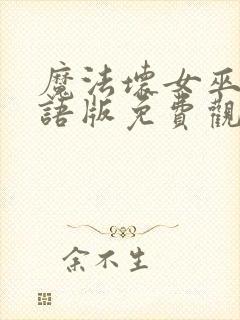 魔法壞女巫
語版免費觀
余不生